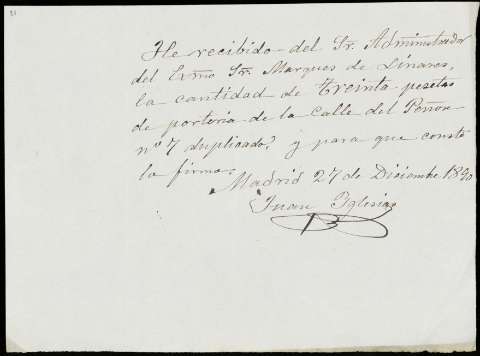 He recibido del Sr. Administrador
del Exmo Sr. Marques de Linares,
la cantidad de Treinta pesetas
de portería de la calle del Peñon
nº 7 duplicado, y para que conste
la firmo.
Madrid 27 de Diciembre 1890
Juan Yglesias